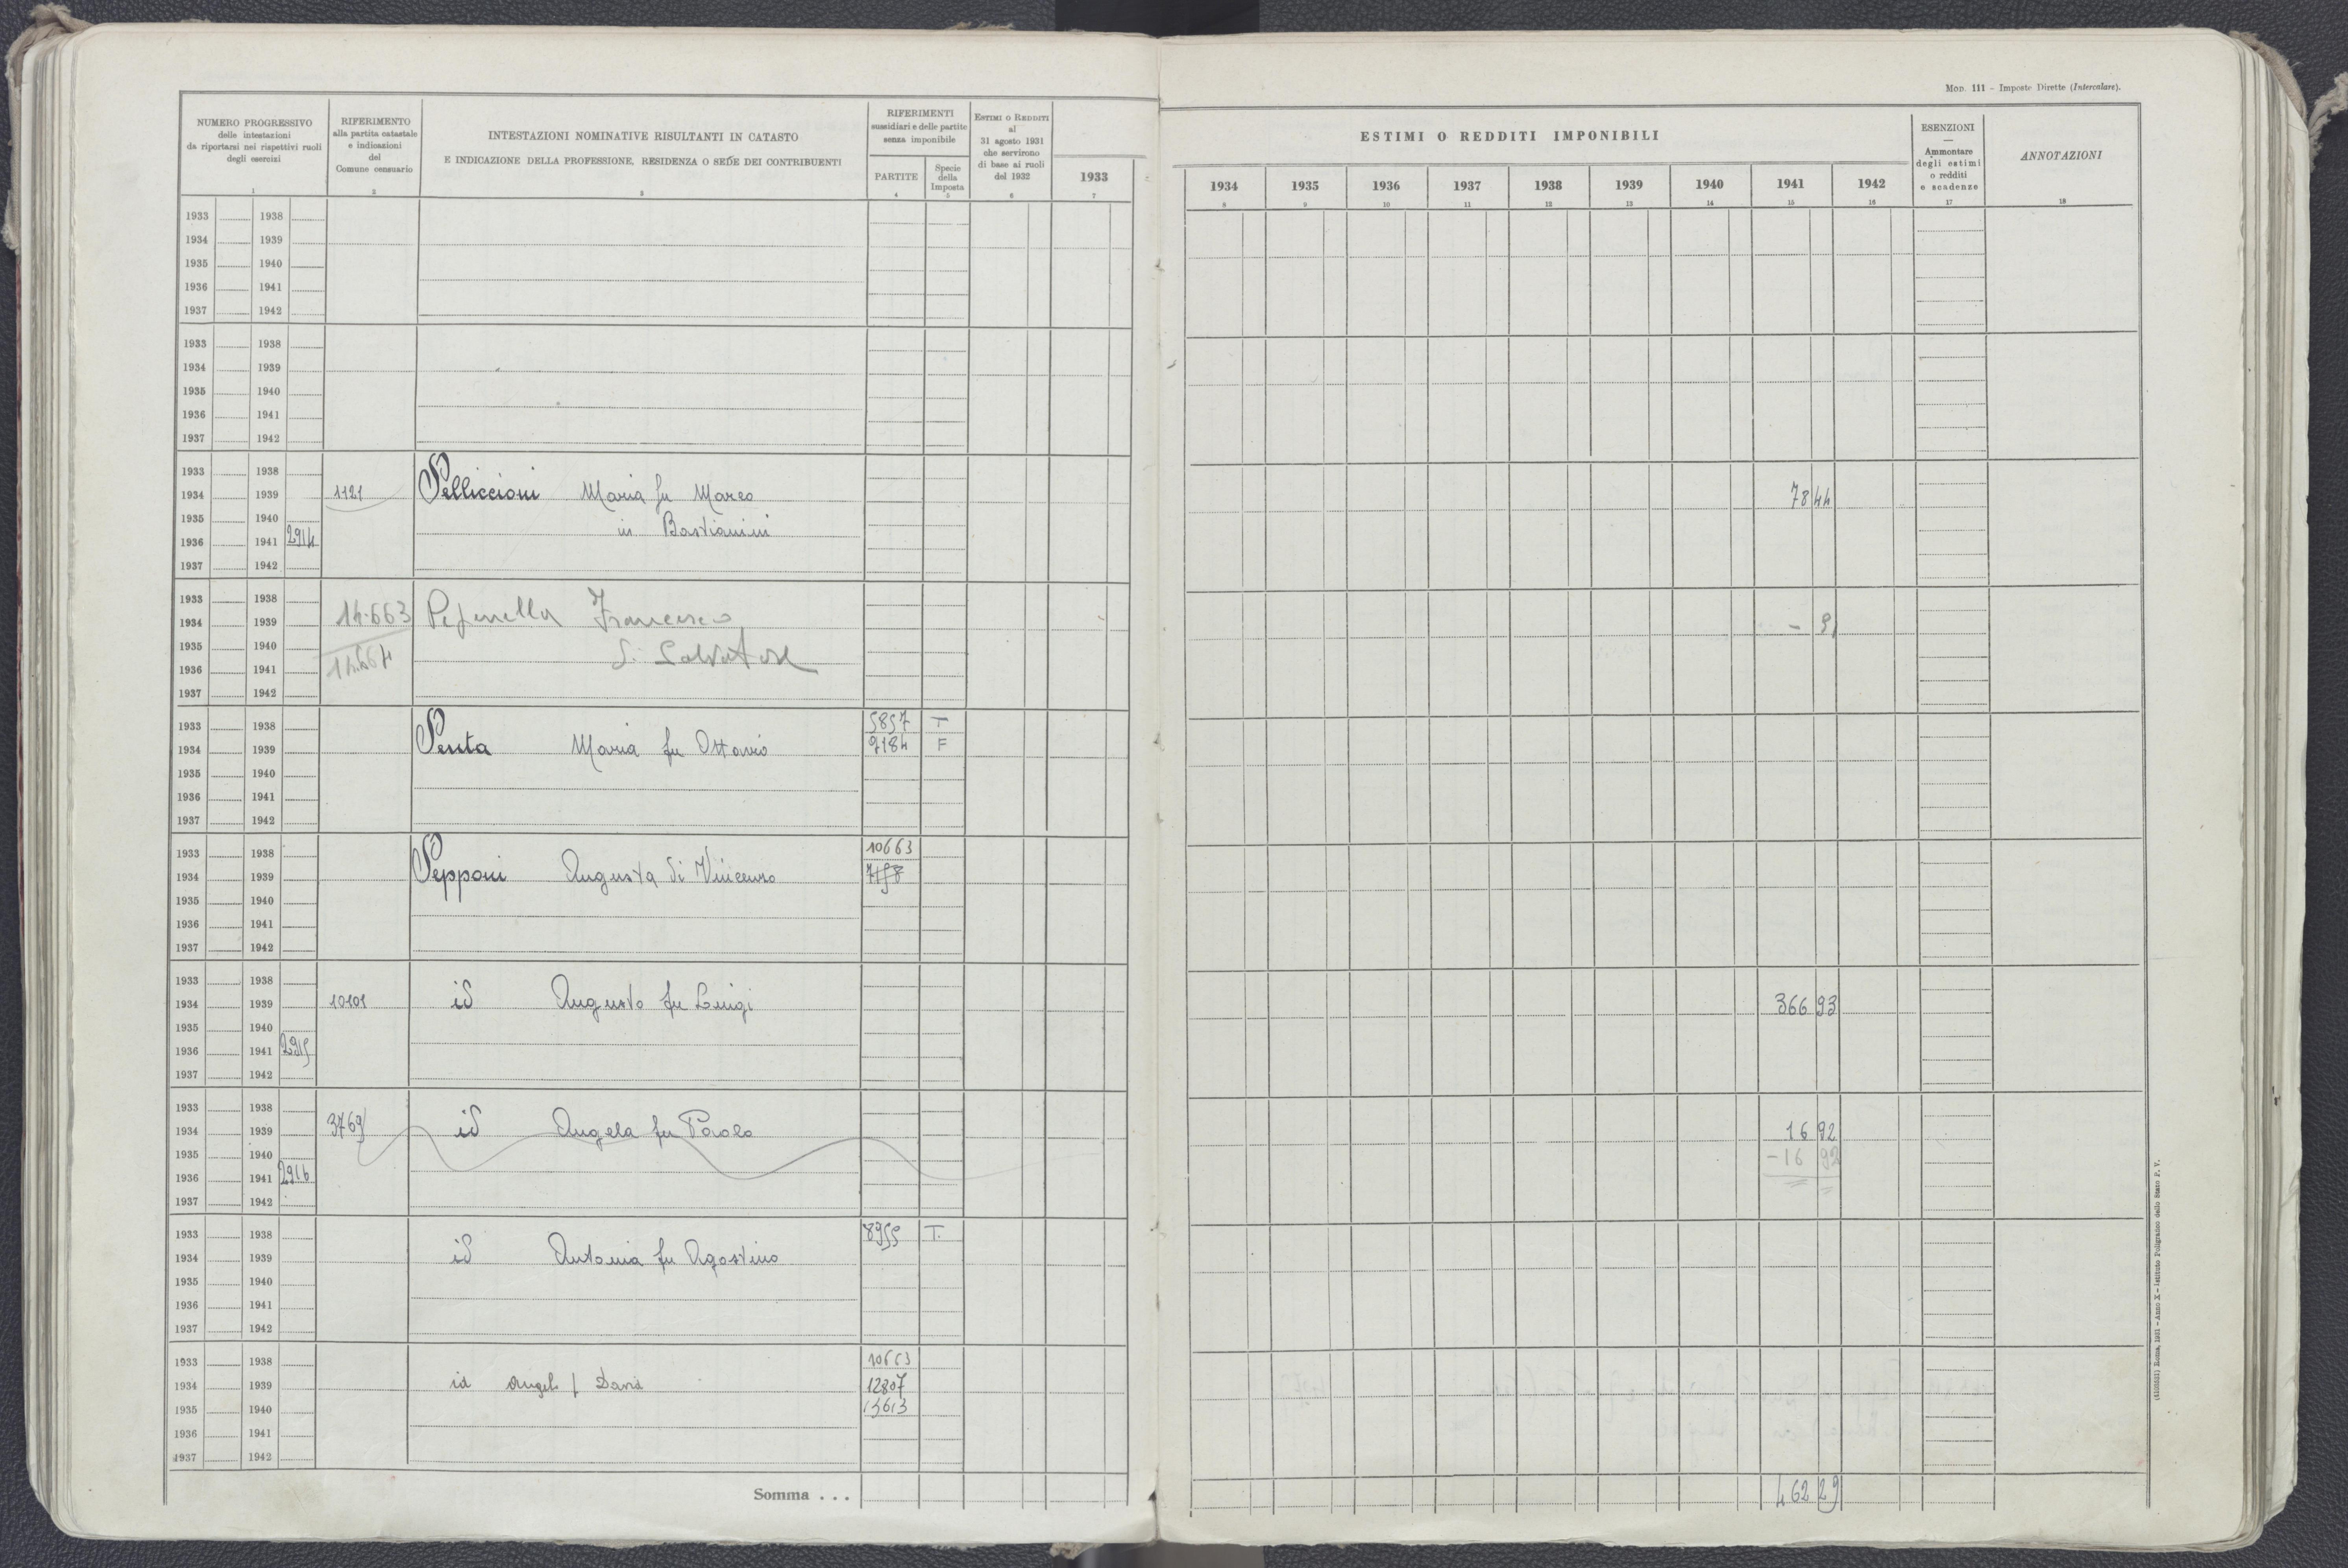 Mod. 111 - Imposte Dirette (Intercalare).
NUMERO PROGRESSIVO
delle intestazioni
da riportarsi nei rispettivi ruoli
degli esercizi
1
RIFERIMENTO
alla partita catastale
e indicazioni
del
Comune censuario
2
INTESTAZIONI NOMINATIVE RISULTANTI IN CATASTO
E INDICAZIONE DELLA PROFESSIONE, RESIDENZA O SEDE DEI CONTRIBUENTI
3
RIFERIMENTI
sussidiari e delle partite
senza imponibile
PARTITE
4
Specie
della
Imposta
5
ESTIMI O REDDITI
al
31 agosto 1931
che servirono
di base ai ruoli
del 1932
6
1933
7
ESTIMI O REDDITI IMPONIBILI
1934 1935 1936 1937 1938 1939 1940 1941 1942
8 9 10 11 12 13 14 15 16
ESENZIONI
—
Ammontare
degli estimi
o redditi
e scadenze
17
ANNOTAZIONI
18
1933 1938
1934 1939
1935 1940
1936 1941
1937 1942
1933 1938
1934 1939
1935 1940
1936 1941
1937 1942
1933 1938
1934 1939 1121 Pelliccioni Maria fu Marco 78 44
1935 1940 in Bastianini
1936 1941 2914
1937 1942
1933 1938 14.663
1934 1939 Francesco
1935 1940 di Salvatore
1936 1941 14.664
1937 1942
1933 1938 5857 T
1934 1939 Penta Maria fu Ottavio 9184 F
1935 1940
1936 1941
1937 1942
1933 1938 10663
1934 1939 Pepponi Augusta di Vincenzo 7158
1935 1940
1936 1941
1937 1942
1933 1938
1934 1939 10101 id Augusto fu Luigi 366 93
1935 1940
1936 1941 2915
1937 1942
1933 1938
1934 1939 3769 id Angela fu Paolo 16 92
1935 1940 -16 92
1936 1941 2916
1937 1942
1933 1938 8955 T.
1934 1939 id Antonia fu Agostino
1935 1940
1936 1941
1937 1942
1933 1938 10663
1934 1939 id Angelo f David 12807
1935 1940 13613
1936 1941
1937 1942
Somma . . . 462 29
(4103521) Roma, 1931 - Anno X - Istituto Poligrafico dello Stato P. V.